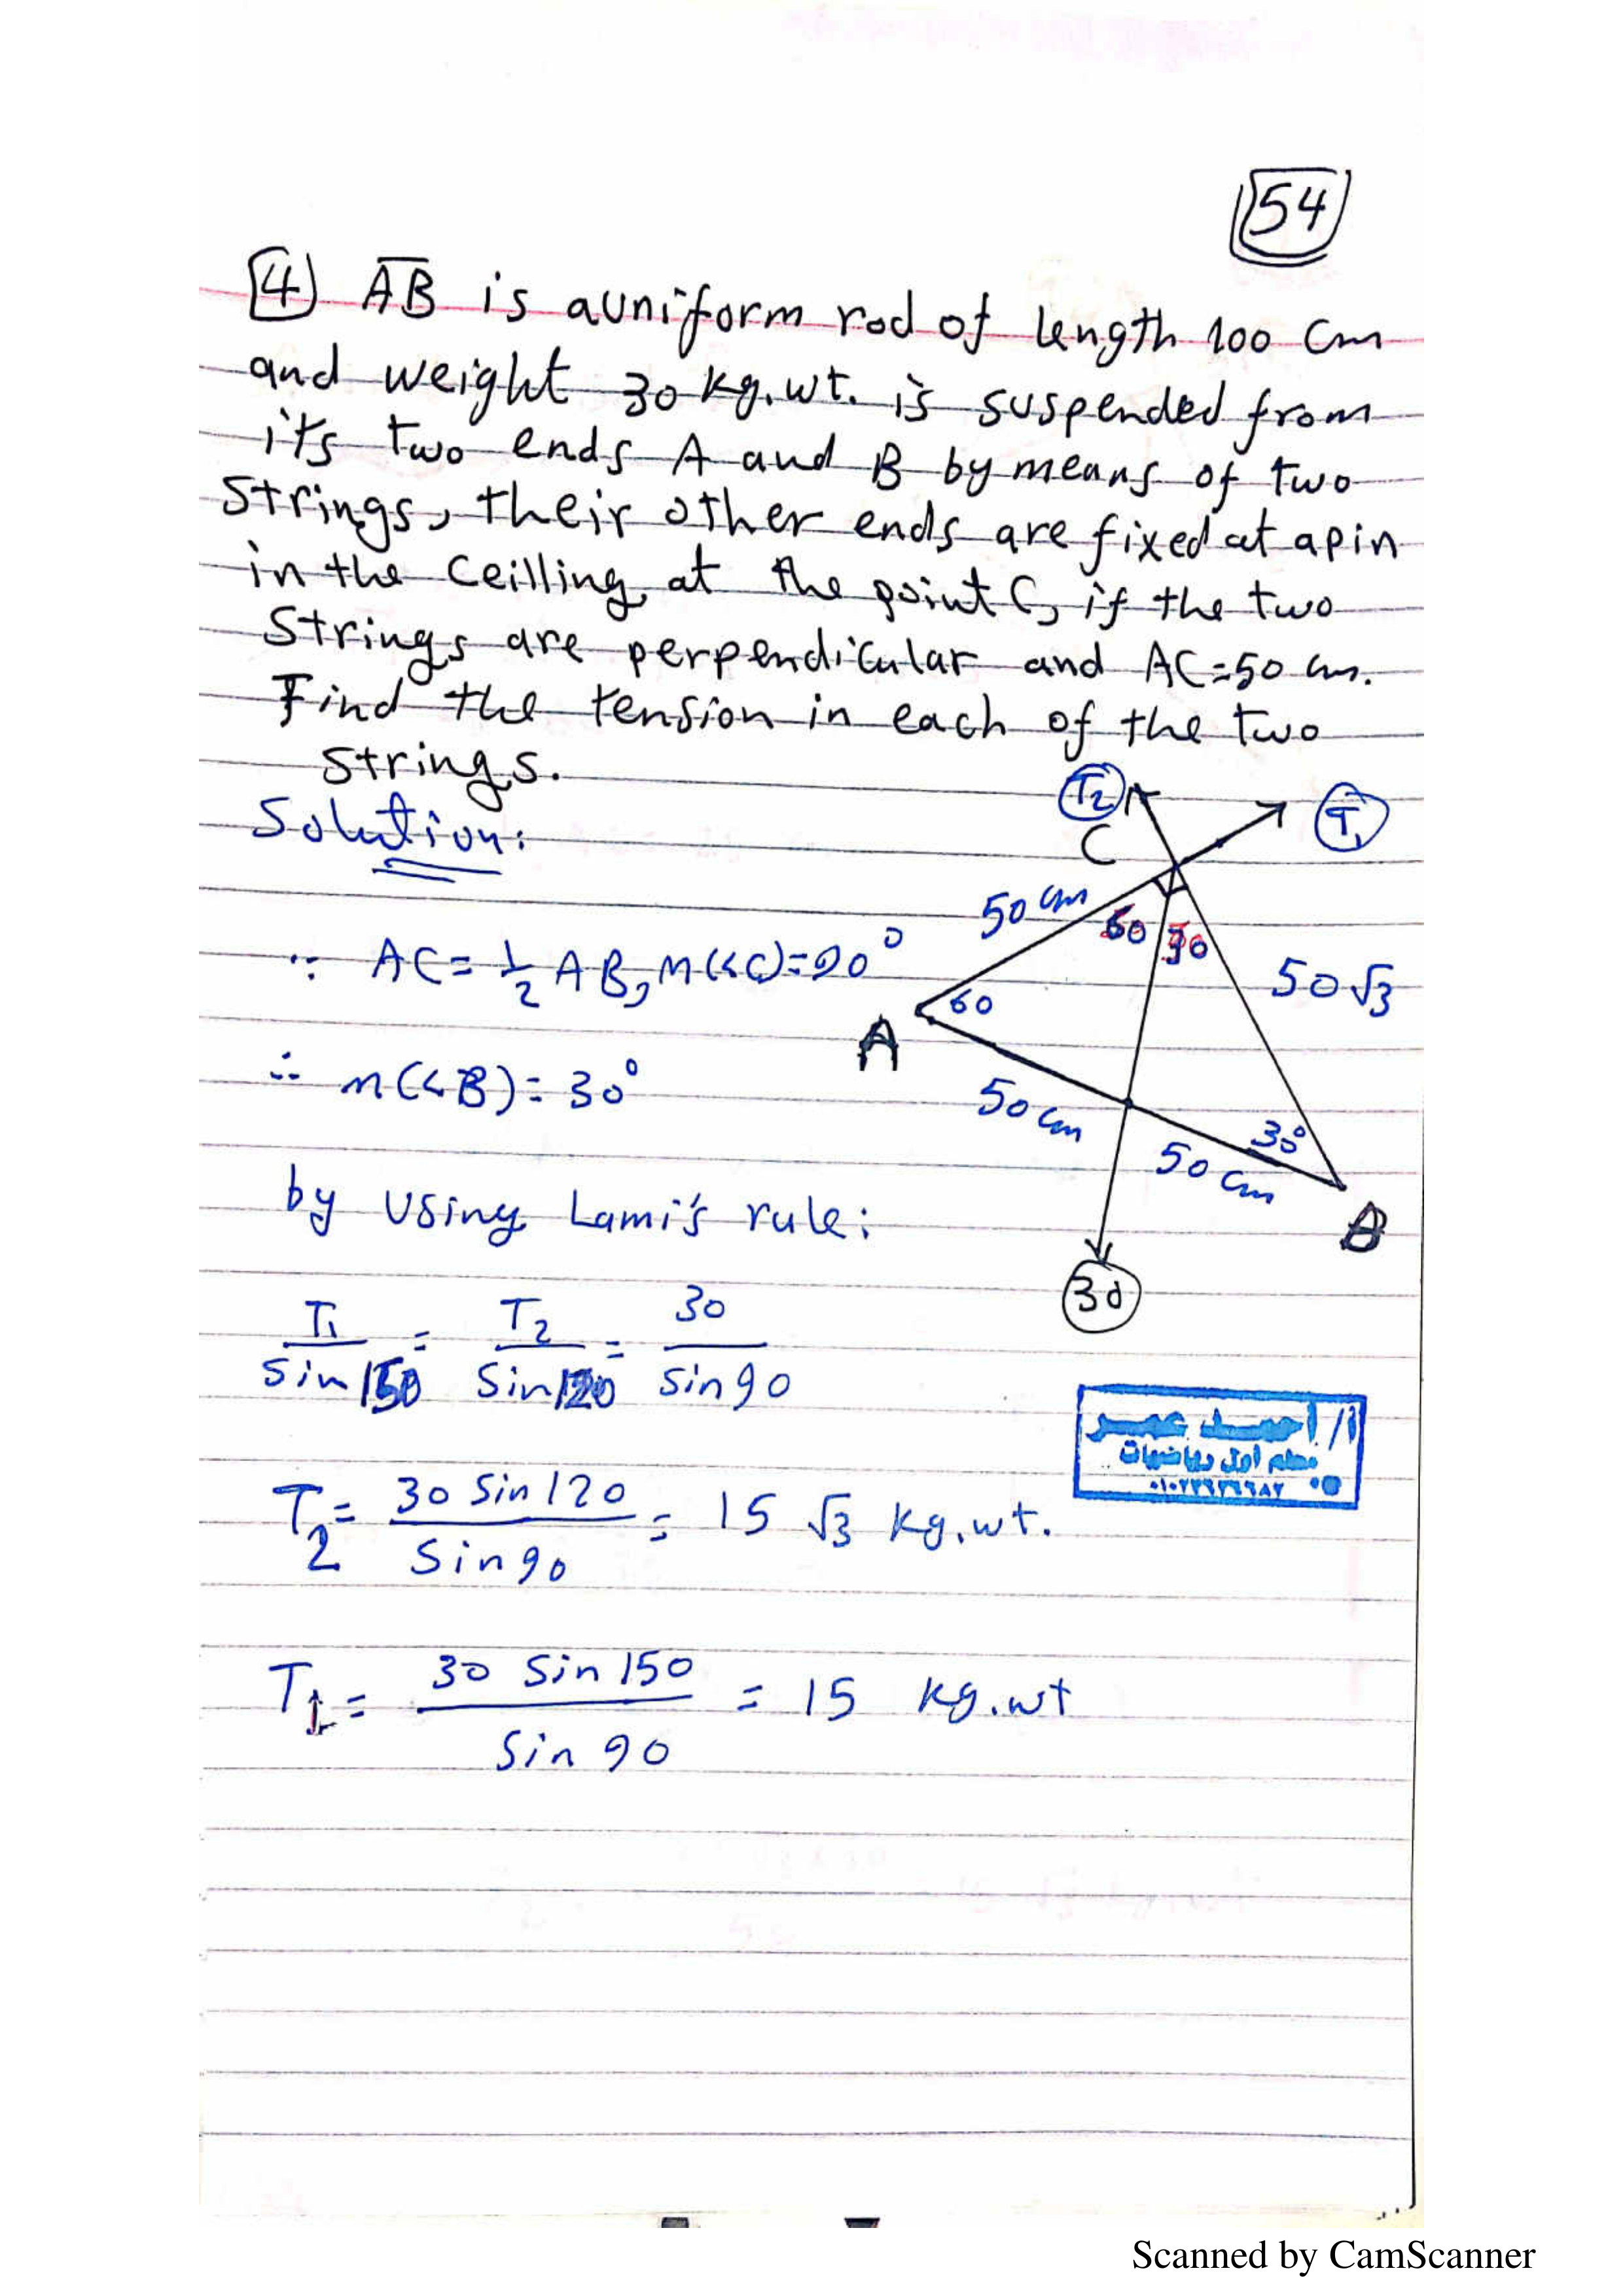 54
4 AB is auniform rod of length 100 cm
and weight 30 kg.wt. is suspended from
its two ends A and B by means of two
strings, their other ends are fixed at apin
in the ceilling at the point C, if the two
strings are perpendicular and AC=50 cm.
Find the tension in each of the two
strings.
Solution:
T2
T1
C
50 cm
60 30
50√3
∵ AC = 1/2 AB, m(<C)=90°
60
A
∴ m(<B) = 30°
50 cm
30°
50 cm
B
by using Lami's rule:
30
T1/sin150 = T2/sin120 = 30/sin90
أ/ أحمد عمر
معلم أول رياضيات
T2 = 30 sin120/sin90 = 15 √3 kg.wt.
T1 = 30 sin150/sin90 = 15 kg.wt
Scanned by CamScanner